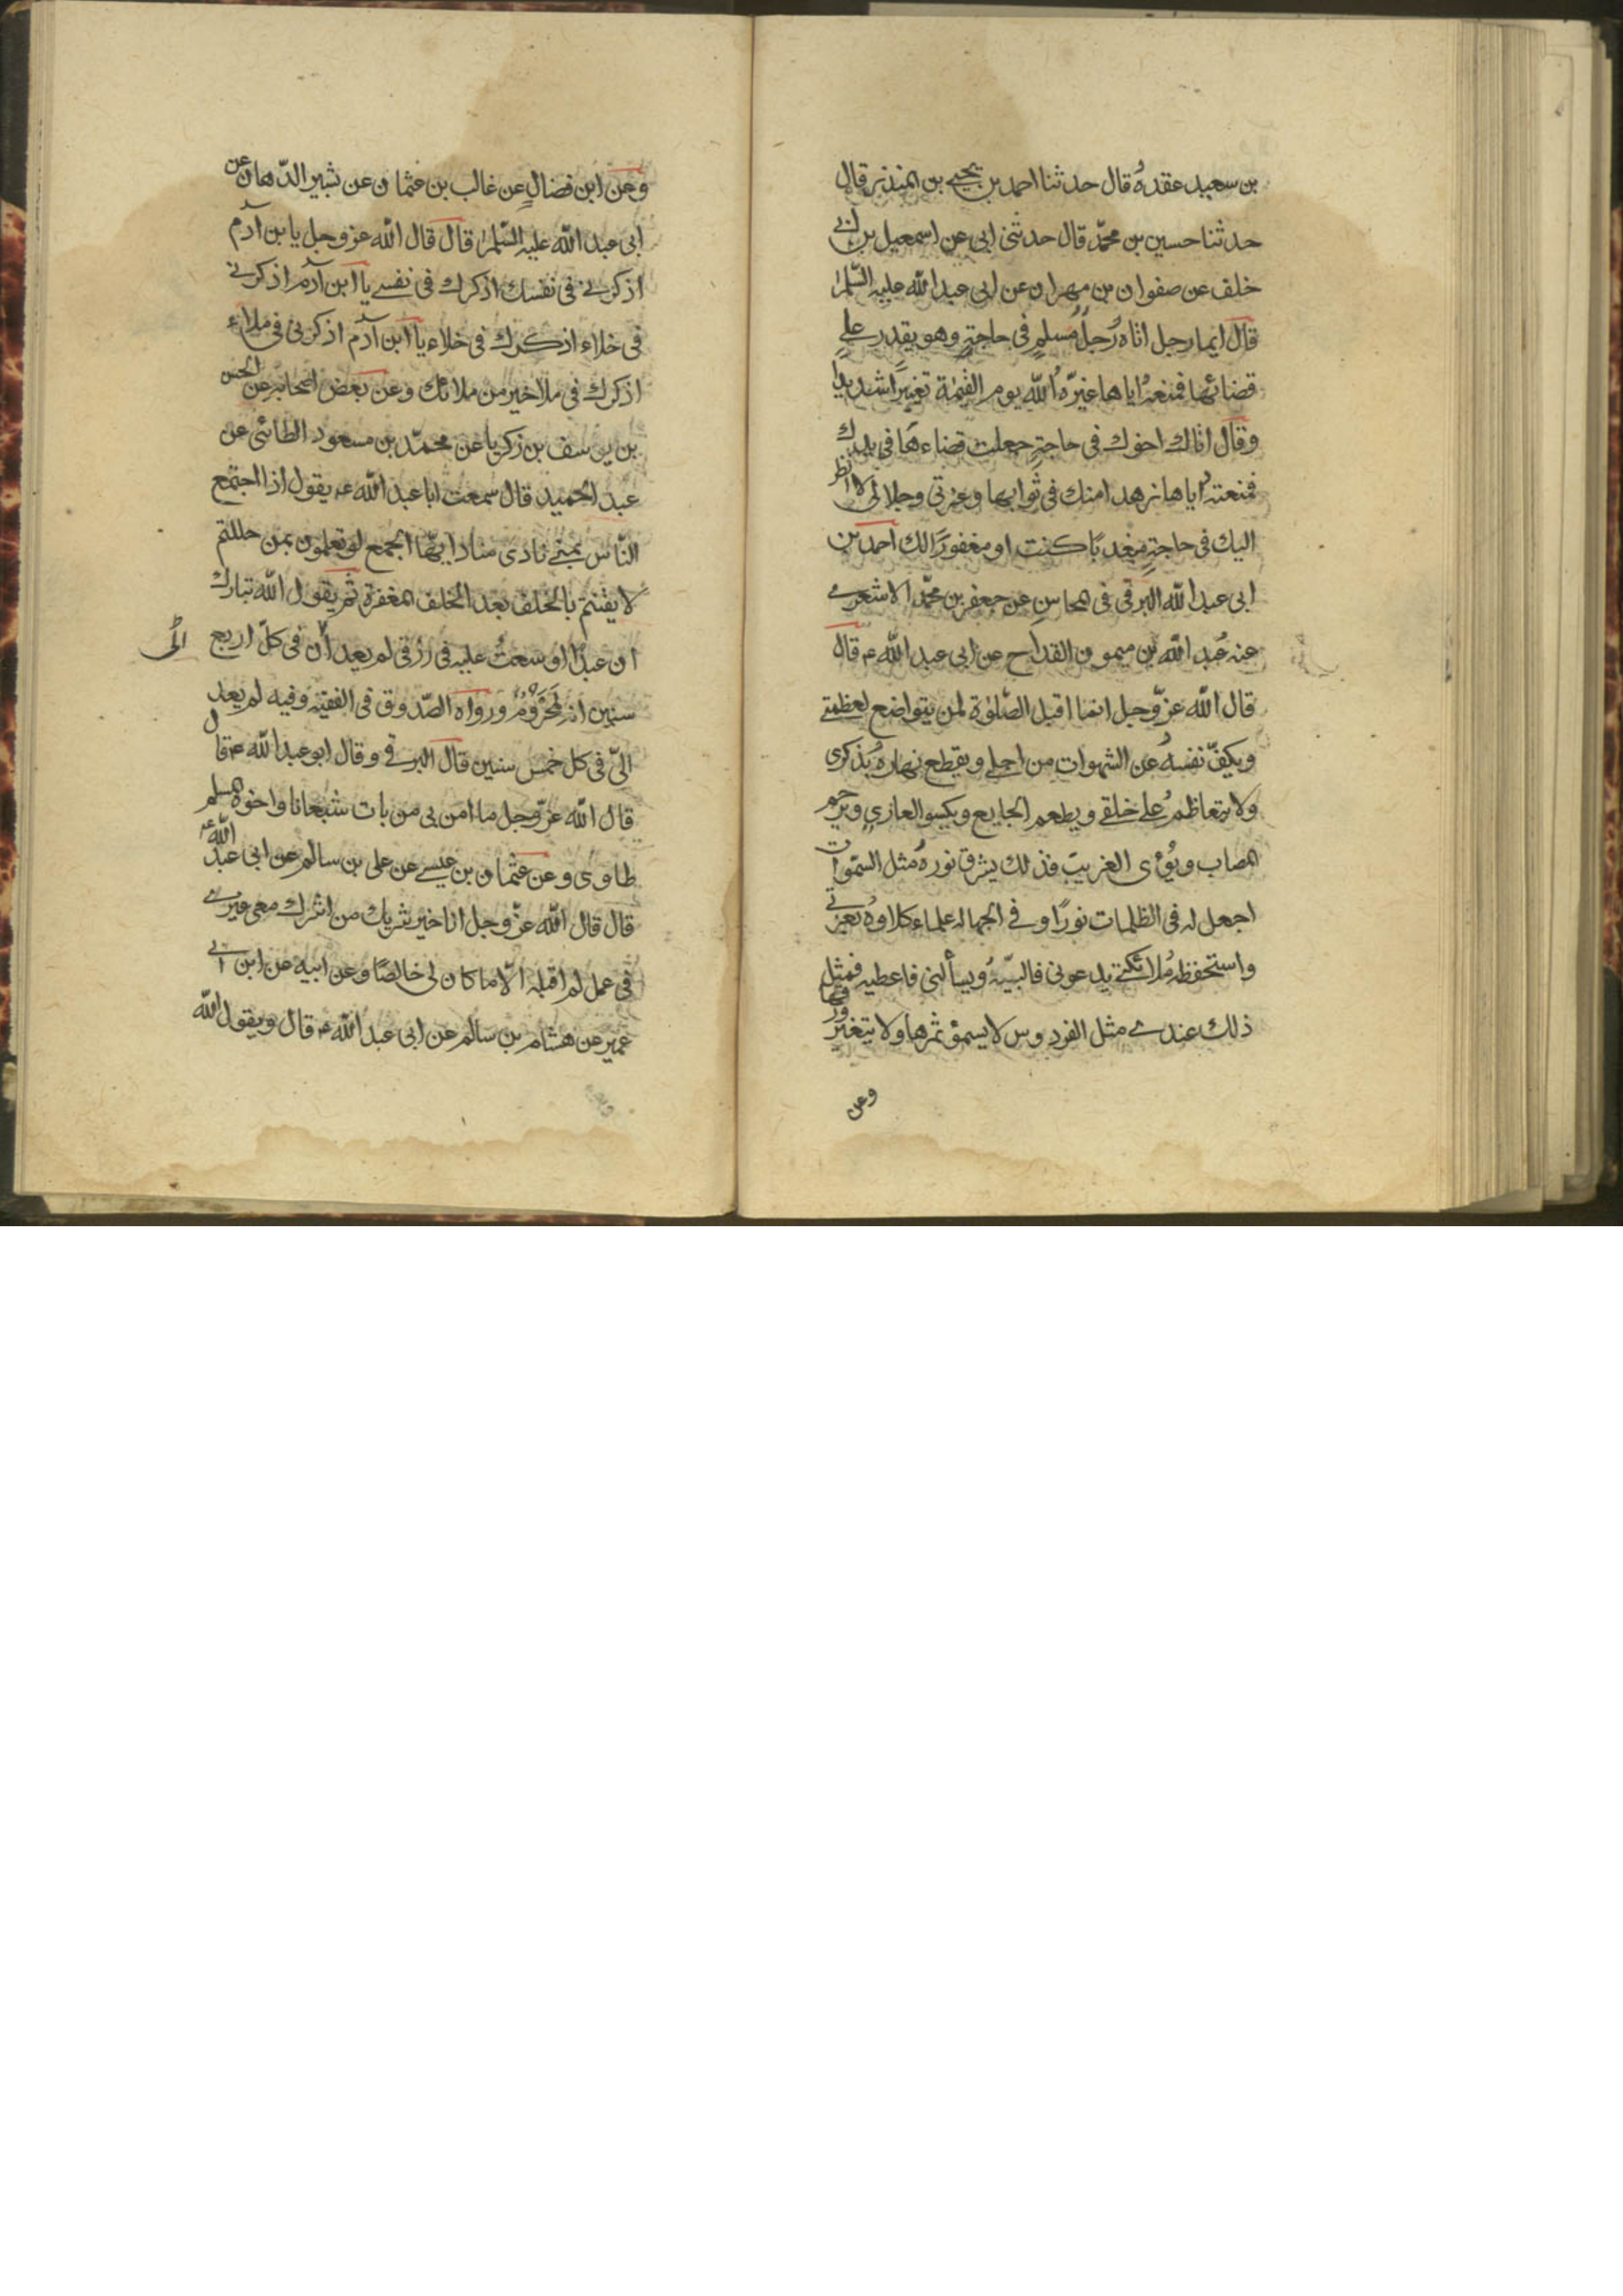 بن سعيد عقده قال حدثنا احمد بن يحيى بن المنذر قال
حدثنا حسين بن محمّد قال حدثنى ابى عن اسمعيل بن ابى
خلف عن صفوان بن مهران عن ابى عبد الله عليه السّلم
قال ايما رجل اتاه رجل مسلم فى حاجةٍ وهو يقدر على
قضائها فمنعه اياها غيّره الله يوم القيمة تغييرًا شديدًا
وقال اتاك اخوك فى حاجةٍ جعلت قضاءها فى يدك
فمنعته اياها زهدا منك فى ثوابها وعزتى وجلالى لا انظر
اليك فى حاجةٍ معذبًا كنت او مغفورًا لك احمد بن
ابى عبد الله البرقى فى المحاسن عن جعفر بن محمّد الاشعرى
عنه عبد الله بن ميمون القداح عن ابى عبد الله ع قال
قال الله عزّ وجل انما اقبل الصّلوة لمن يتواضع لعظمتى
ويكفّ نفسه عن الشهوات من اجلى ويقطع نهاره بذكرى
ولا يتعاظم على خلقى ويطعم الجايع ويكسو العارى ويرحم
المصاب ويؤى الغريب فذلك يشرق نوره مثل السّموات
اجعل له فى الظلمات نورًا وفى الجهاله علماء كلاوه بعزتى
واستحفظه ملائكتى يدعونى فالبيّه ويسألنى فاعطيه فمثل
ذلك عندى مثل الفردوس لا يسمؤ ثمرها ولا يتغير ورقها
وعن
وعن ابن فضال عن غالب بن عثمان عن بشير الدّهان عن
ابى عبد الله عليه السّلم قال قال الله عز وجل يا بن آدم
اذكرنى فى نفسك اذكرك فى نفسى يا ابن آدم اذكرنى
فى خلاء اذكرك فى خلاء يا ابن آدم اذكرنى فى ملاء
اذكرك فى ملا خير من ملائك وعن بعض اصحابه عن الحسن
بن يوسف بن زكريا عن محمّد بن مسعود الطائى عن
عبد الحميد قال سمعت ابا عبد الله ع يقول اذا اجتمع
النّاس بمنى نادى مناد ايّها الجمع لو تعلمون بمن حللتم
لايقنتم بالخلف بعد الخلف المغفرة ثم يقول الله تبارك
ان عبدًا اوسعت عليه فى رزقى لم يعد ان فى كلّ اربع
الىّ
سنين انه لمحروم ورواه الصّدوق فى الفقيه وفيه لم يعد
الىّ فى كل خمس سنين قال البرقى وقال ابو عبد الله ع قال
قال الله عزّ وجل ما امن بى من بات شبعانا واخوه المسلم
طاوى وعن عثمان بن عيسى عن على بن سالم عن ابى عبد الله ع
قال قال الله عزّ وجل انا خير شريك من اشرك معى غيرى
فى عمل لم اقبله الّا ما كان لى خالصًا وعن ابيه عن ابن ابى
عمير عن هشام بن سالم عن ابى عبد الله ع قال ويقول الله